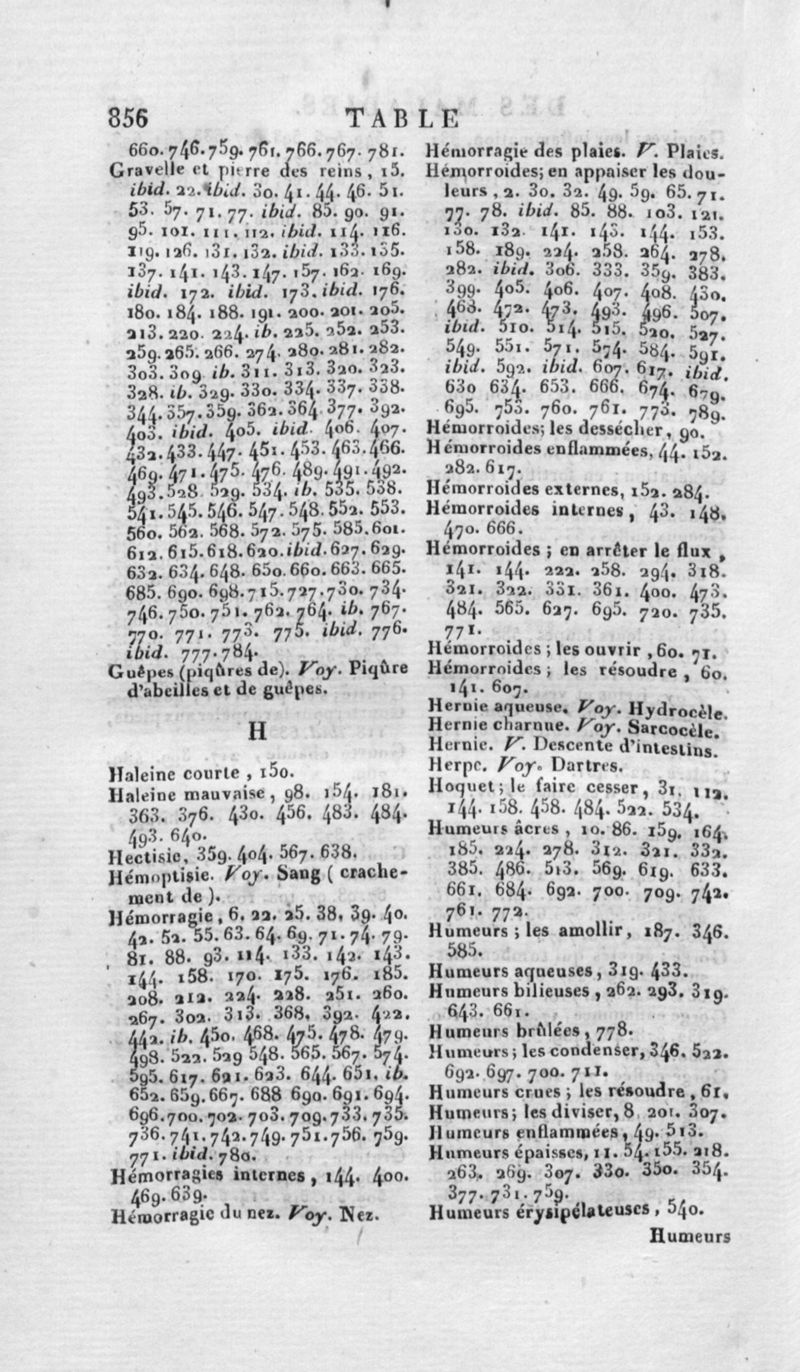 856
TABLE
660. 746. 759. 761. 766. 767. 781.
Gravelle et pierre des reins, 15.
ibid. 22. ibid. 30. 41. 44. 46. 51.
53. 57. 71. 77. ibid. 85. 90. 91.
95. 101. 111. 112. ibid. 114. 116.
119. 126. 131. 132. ibid. 133. 135.
137. 141. 143. 147. 157. 162. 169.
ibid. 172. ibid. 173. ibid. 176.
180. 184. 188. 191. 200. 201. 205.
213. 220. 224. ib. 225. 252. 253.
259. 265. 266. 274. 280. 281. 282.
303. 309. ib. 311. 313. 320. 323.
328. ib. 329. 330. 334. 337. 338.
344. 357. 359. 362. 364. 377. 392.
403. ibid. 405. ibid. 406. 407.
432. 433. 447. 451. 453. 463. 466.
469. 471. 475. 476. 489. 491. 492.
493. 528. 529. 534. ib. 535. 538.
541. 545. 546. 547. 548. 552. 553.
560. 562. 568. 572. 575. 585. 601.
612. 615. 618. 620. ibid. 627. 629.
632. 634. 648. 650. 660. 663. 665.
685. 690. 698. 715. 727. 730. 734.
746. 750. 751. 762. 764. ib. 767.
770. 771. 773. 775. ibid. 776.
ibid. 777. 784.
Guêpes (piqûres de). Voy. Piqûre
d'abeilles et de guêpes.
H
Haleine courte, 150.
Haleine mauvaise, 98. 154. 181.
363. 376. 430. 456. 483. 484.
493. 640.
Hectisie, 359. 404. 567. 638.
Hémoptisie. Voy. Sang ( crache-
ment de ).
Hémorragie, 6. 22. 25. 38. 39. 40.
42. 52. 55. 63. 64. 69. 71. 74. 79.
81. 88. 93. 114. 133. 142. 143.
144. 158. 170. 175. 176. 185.
208. 212. 224. 228. 251. 260.
267. 302. 313. 368. 392. 422.
442. ib. 450. 468. 475. 478. 479.
498. 522. 529 548. 565. 567. 574.
595. 617. 621. 623. 644. 651. ib.
652. 659. 667. 688 690. 691. 694.
696. 700. 702. 703. 709. 733. 735.
736. 741. 742. 749. 751. 756. 759.
771. ibid. 780.
Hémorragies internes, 144. 400.
469. 639.
Hémorragie du nez. Voy. Nez.
Hémorragie des plaies. V. Plaies.
Hémorroides; en appaiser les dou-
leurs, 2. 30. 32. 49. 59. 65. 71.
77. 78. ibid. 85. 88. 103. 121.
130. 132. 141. 143. 144. 153.
158. 189. 224. 258. 264. 278.
282. ibid. 306. 333. 359. 383.
399. 405. 406. 407. 408. 430.
468. 472. 473. 493. 496. 507.
ibid. 510. 514. 515. 520. 527.
549. 551. 571. 574. 584. 591.
ibid. 592. ibid. 607. 617. ibid.
630 634. 653. 666. 674. 679.
695. 753. 760. 761. 773. 789.
Hémorroides; les dessécher, 90.
Hémorroides enflammées, 44. 152.
282. 617.
Hémorroides externes, 152. 284.
Hémorroides internes, 43. 148.
470. 666.
Hémorroides ; en arrêter le flux,
141. 144. 222. 258. 294. 318.
321. 322. 331. 361. 400. 473.
484. 565. 627. 695. 720. 735.
771.
Hémorroides ; les ouvrir, 60. 71.
Hémorroides ; les résoudre, 60.
141. 607.
Hernie aqueuse. Voy. Hydrocèle.
Hernie charnue. Voy. Sarcocèle.
Hernie. V. Descente d'intestins.
Herpe. Voy. Dartres.
Hoquet; le faire cesser, 31. 112.
144. 158. 458. 484. 522. 534.
Humeurs âcres, 10. 86. 159. 164.
185. 224. 278. 312. 321. 332.
385. 486. 513. 569. 619. 633.
661. 684. 692. 700. 709. 742.
761. 772.
Humeurs ; les amollir, 187. 346.
585.
Humeurs aqueuses, 319. 433.
Humeurs bilieuses, 262. 293. 319.
643. 661.
Humeurs brûlées, 778.
Humeurs ; les condenser, 346. 522.
692. 697. 700. 711.
Humeurs crues ; les résoudre, 61.
Humeurs; les diviser, 8. 201. 307.
Humeurs enflammées, 49. 513.
Humeurs épaisses, 11. 54. 155. 218.
263. 269. 307. 330. 350. 354.
377. 731. 759.
Humeurs érysipélateuses, 540.
Humeurs